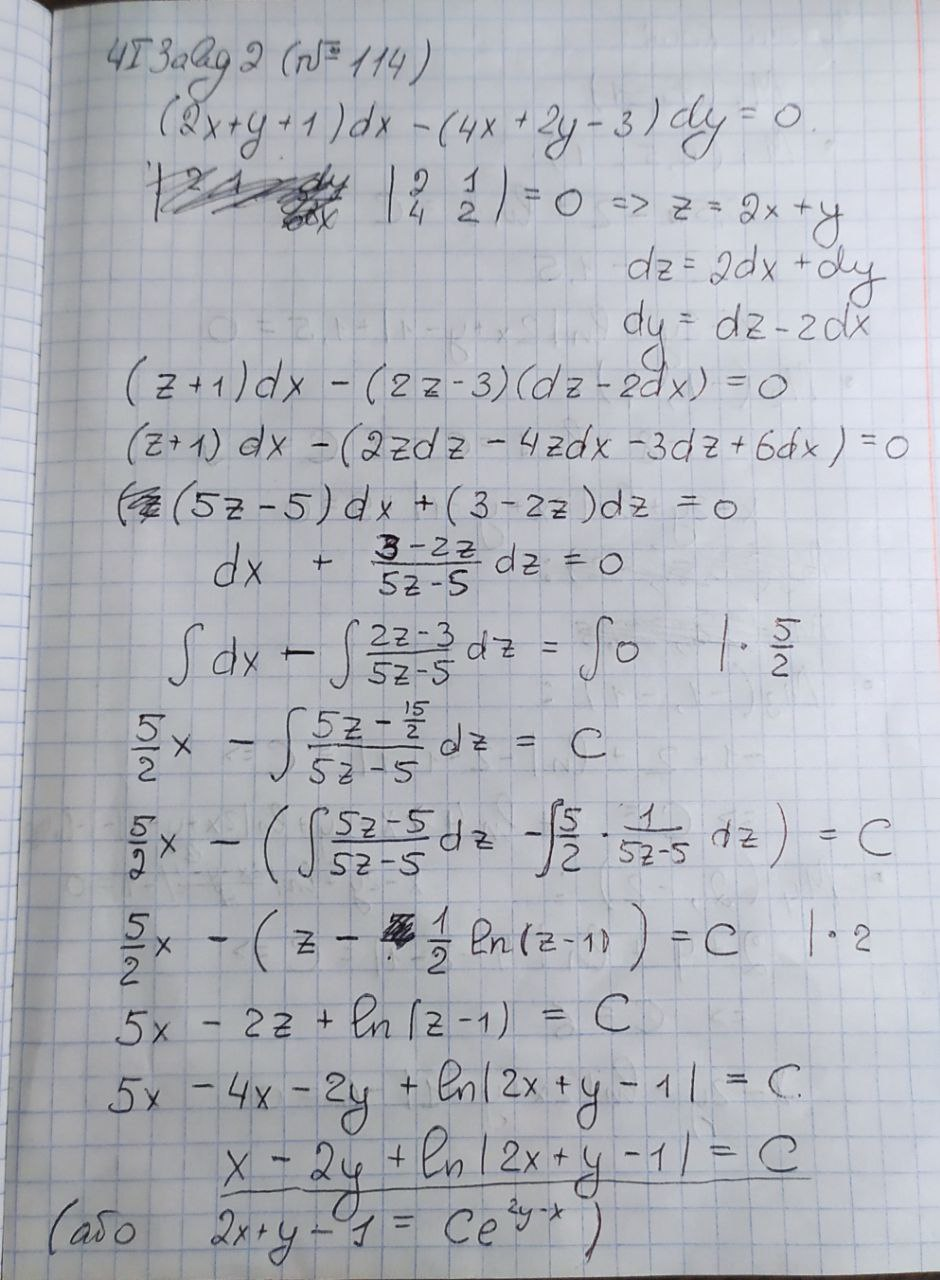 4I Завд 2 (№ 114)
(2x+y+1)dx - (4x+2y-3)dy = 0.
|2 1; 4 2| = 0 => z = 2x+y
dz = 2dx + dy
dy = dz - 2dx
(z+1)dx - (2z-3)(dz-2dx) = 0
(z+1)dx - (2zdz - 4zdx - 3dz + 6dx) = 0
(5z-5)dx + (3-2z)dz = 0
dx + (3-2z)/(5z-5) dz = 0
∫dx - ∫(2z-3)/(5z-5) dz = ∫0 |· 5/2
5/2 x - ∫(5z - 15/2)/(5z-5) dz = C
5/2 x - (∫(5z-5)/(5z-5) dz - ∫5/2 · 1/(5z-5) dz) = C
5/2 x - (z - 1/2 ln(z-1)) = C |· 2
5x - 2z + ln(z-1) = C
5x - 4x - 2y + ln|2x+y-1| = C.
x - 2y + ln|2x+y-1| = C
(або 2x+y-1 = Ce^(2y-x))